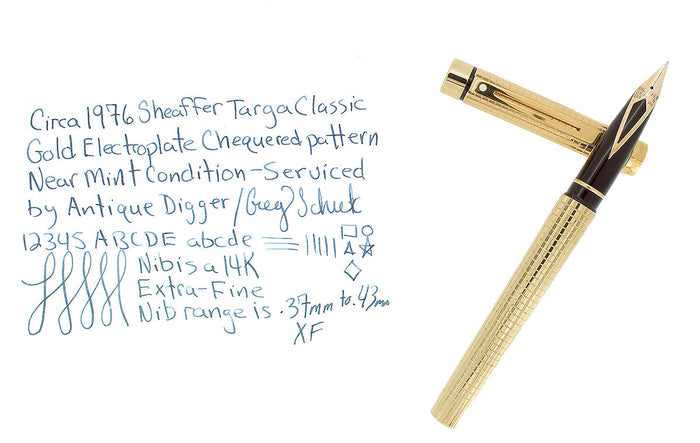 Circa 1976 Sheaffer Targa Classic
Gold Electroplate Chequered pattern
Near Mint Condition-Serviced
by Antique Digger/Greg
12345 ABCDE abcde
Nib is a 14K
Extra-Fine
Nib range is .37mm to .43mm
XF